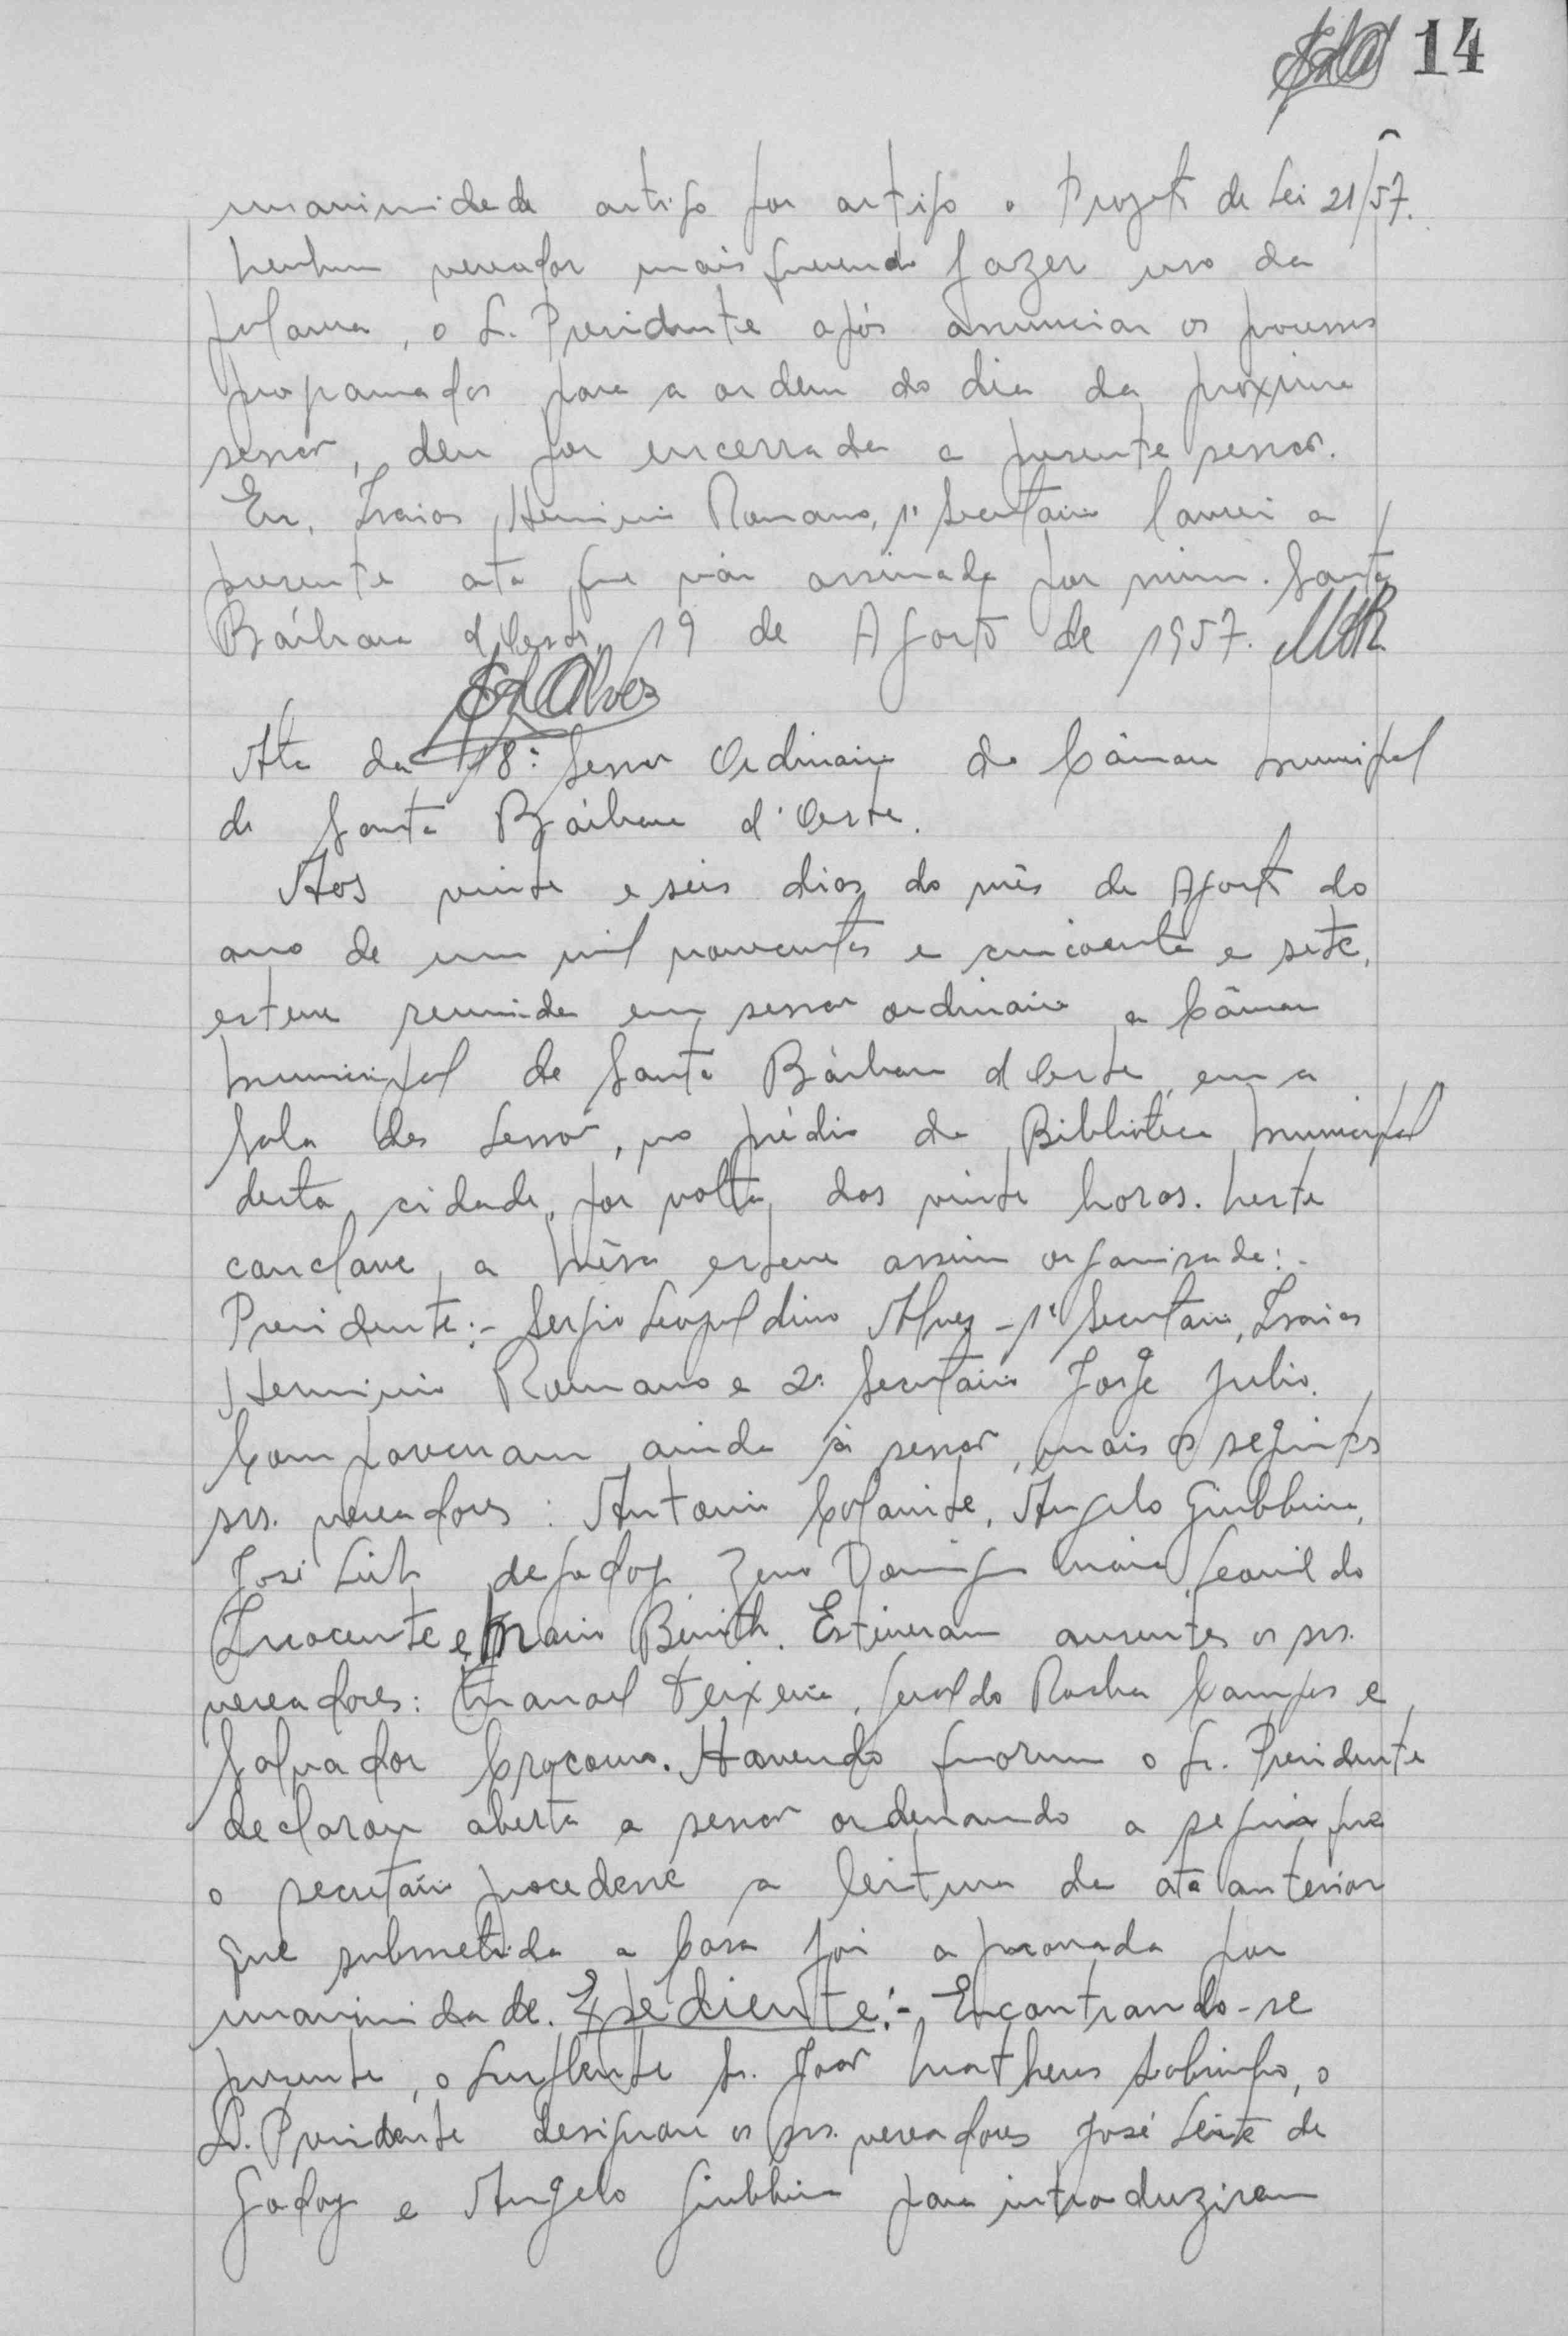 14
unanimidade artigo por artigo o Projeto de Lei 21/57.
Nenhum vereador mais querendo fazer uso da
palavra, o S. Presidente após anunciar os processos
programados para a ordem do dia da próxima
sessão, deu por encerrada a presente sessão.
Eu, Isaias Herminio Romano, 1º Secretário lavrei a
presente ata que vai assinada por mim. Santa
Bárbara d'Oeste, 19 de Agosto de 1957.
Alves
Ata da 18ª Sessão Ordinaria da Câmara Municipal
de Santa Bárbara d'Oeste.
Aos vinte e seis dias do mês de Agosto do
ano de um mil novecentos e cincoenta e sete,
esteve reunida em sessão ordinaria a Câmara
Municipal de Santa Bárbara d'Oeste, em a
Sala das Sessões, no prédio da Biblioteca Municipal
desta cidade, por volta das vinte horas. Neste
conclave, a Mêsa esteve assim organisada:-
Presidente:- Sergio Leopoldino Alves - 1º Secretario, Isaias
Herminio Romano e 2º Secretário Jorge Julio.
Compareceram ainda à sessão, mais os seguintes
srs. vereadores: Antonio Colanite, Angelo Giubbina,
José Leite de Godoy, Zeno Domingos Maia, Leonildo
Inocente e Mario Benith. Estiveram ausentes os srs.
vereadores: Manoel Teixeira, Geraldo Rocha Campos e
Salvador Crocomo. Havendo quorum o Sr. Presidente
declarou aberta a sessão ordenando a seguir que
o secretário procedesse a leitura da ata anterior
que submetida a Casa foi aprovada por
unanimidade. Expediente:- Encontrando-se
presente, o suplente Sr. João Matheus Sobrinho, o
S. Presidente designou os srs. vereadores José Leite de
Godoy e Angelo Giubbina para introduziram